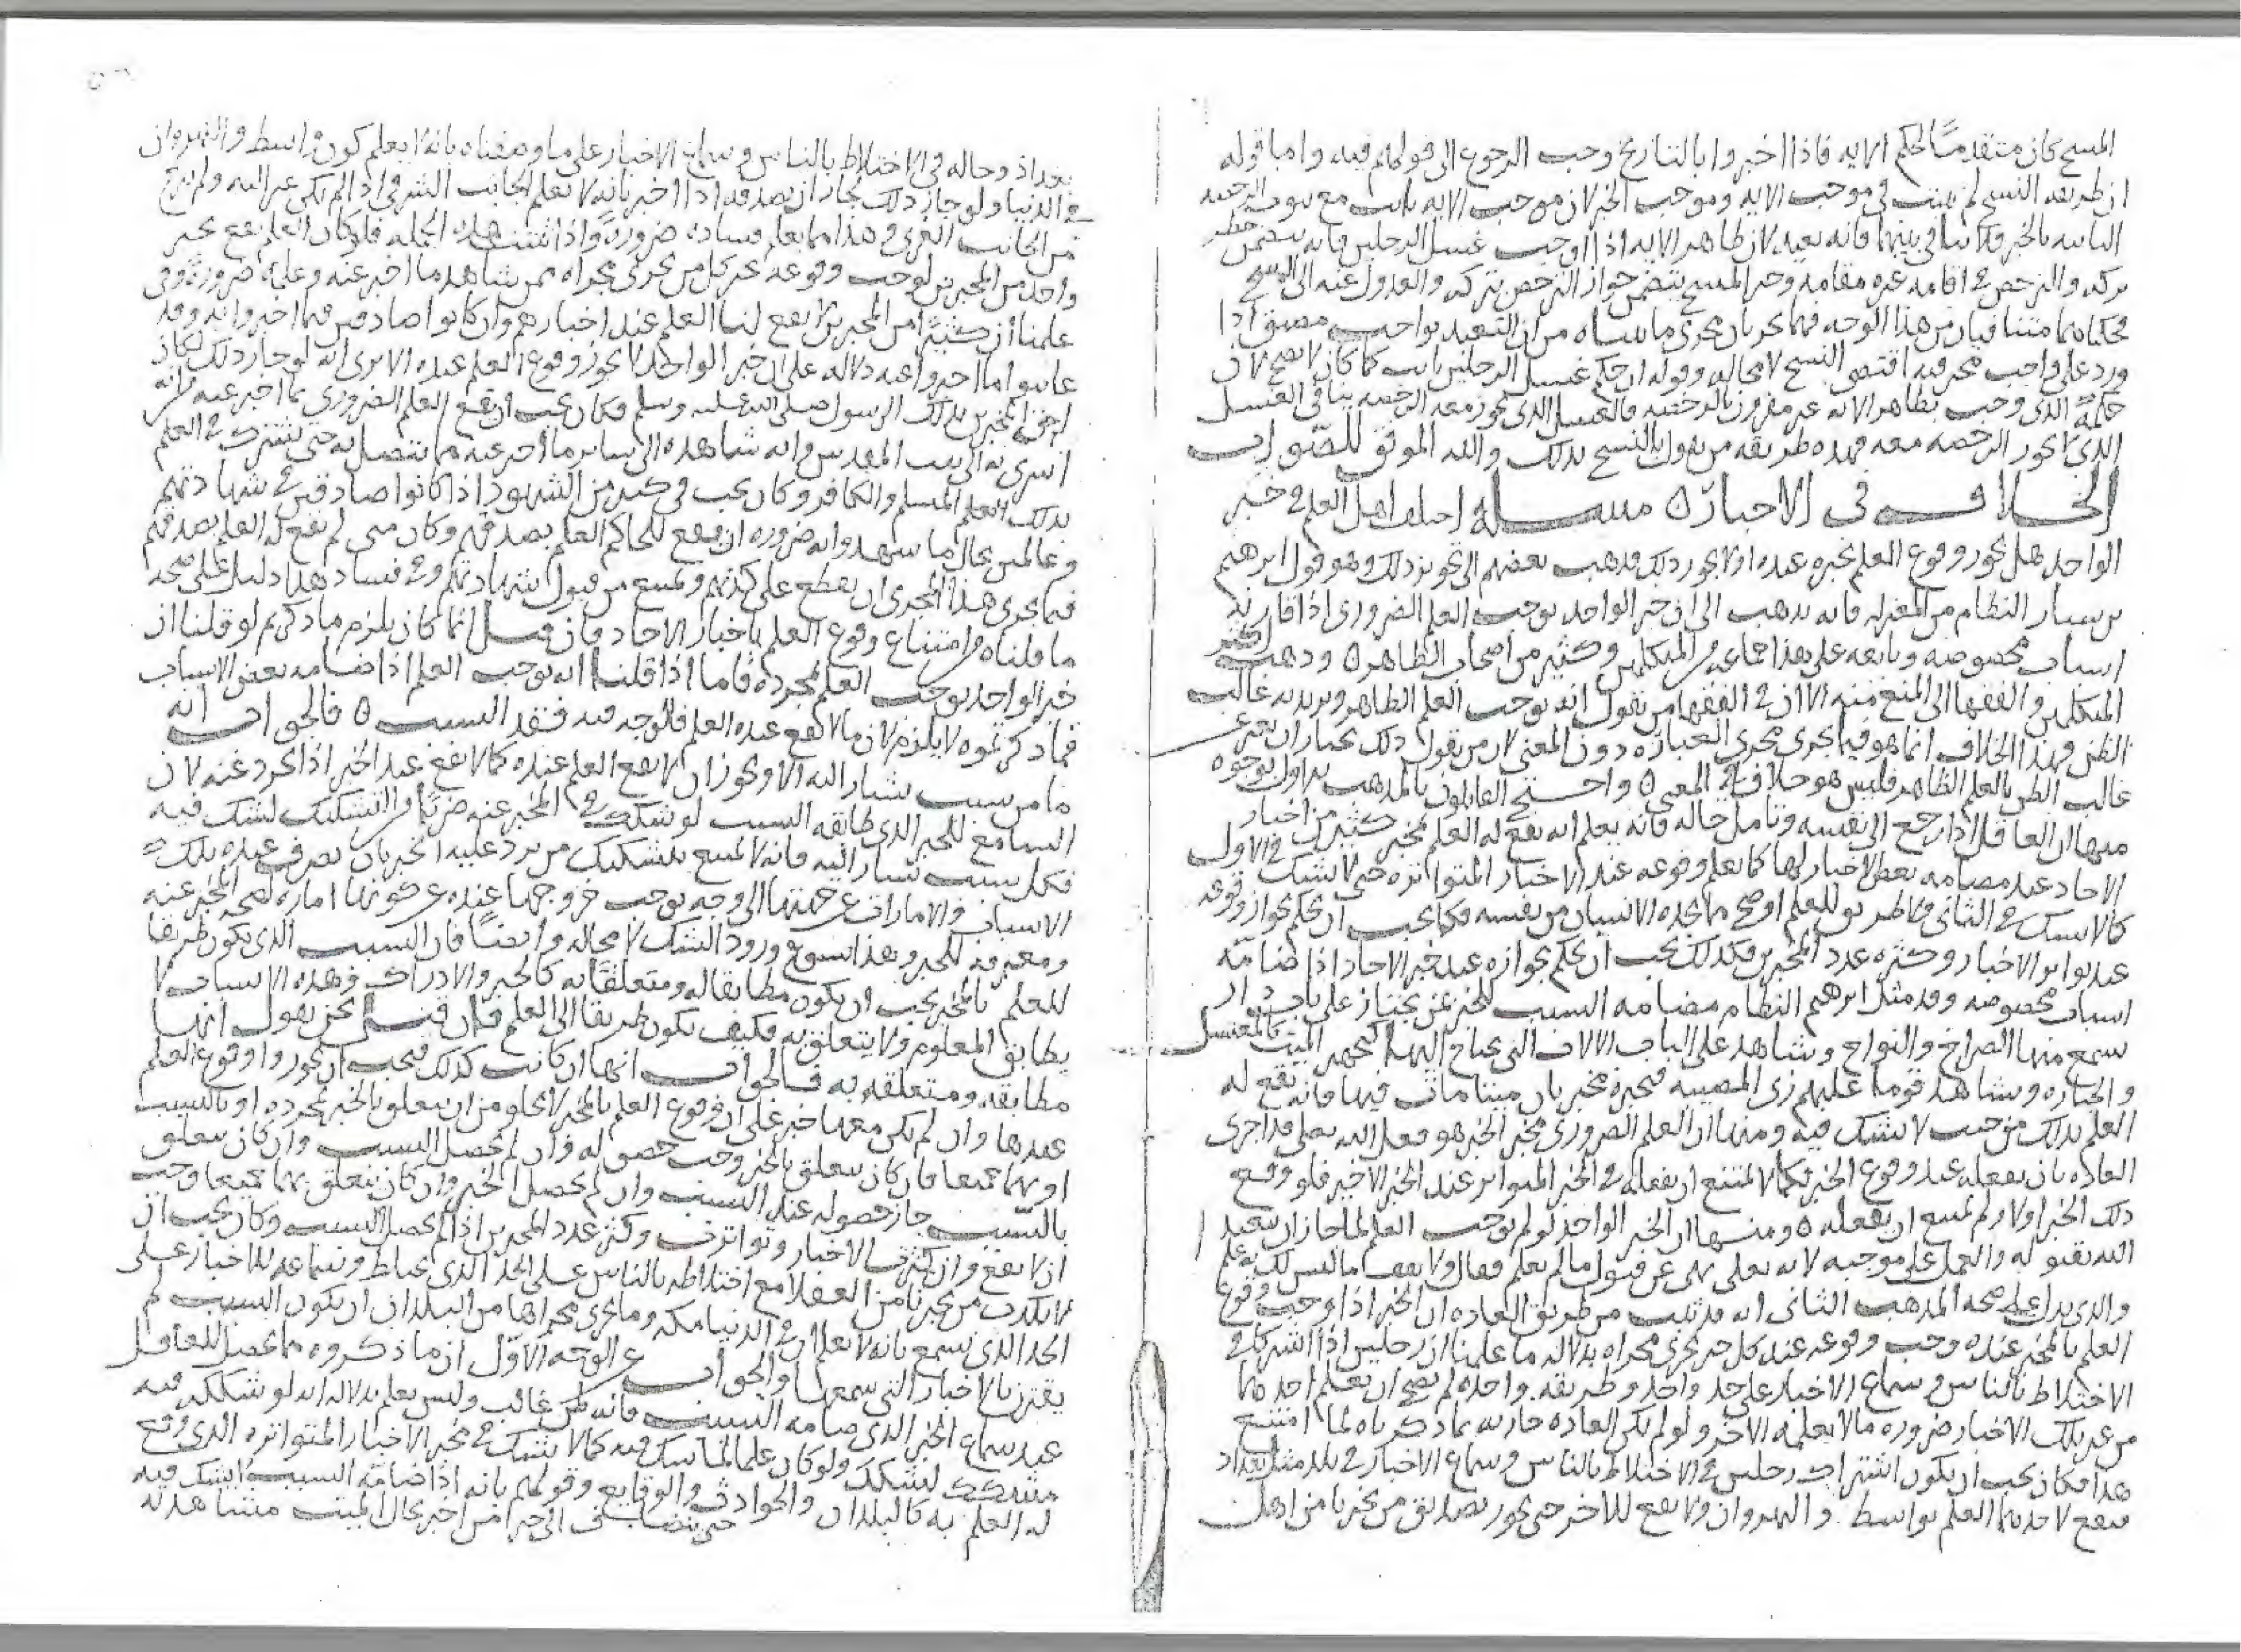 المسح كان متقدماً لحكم الايه فاذا اخبروا بالتاريخ وجب الرجوع الى قولهم فيه واما قوله
ان طريقه النسخ لم يثبت في موجب الايه وموجب الخبر لان موجب الايه ثابت مع ثبوت الرخصه
الثابته بالخبر فلا تنافي بينهما فانه بعيد لان ظاهر الايه اذا اوجب غسل الرجلين فانه يتضمن حظر
تركه والترخص في اقامه غيره مقامه وخبر المسح يتضمن جواز الترخص بتركه والعدول عنه الى المسح
فحكماهما متنافيان من هذا الوجه فهما يجريان مجرى ما بيناه من ان التعبد بواجب مضيق اذا
ورد على واجب مخير فيه اقتضى النسخ لا محاله وقوله ان حكم غسل الرجلين ثابت كما كان لا يصح لان
حكمه الذي وجب بظاهر الايه غير مقرون بالرخصه فالغسل الذي يجوز معه الرخصه ينافي الغسل
الذي لا يجوز الرخصه معه فهذه طريقه من يقول بالنسخ بذلك والله الموفق للصواب
الخلاف في الاخبار ه مسله اختلف اهل العلم في خبر
الواحد هل يجوز وقوع العلم بمخبره عنده او لا يجوز ذلك فذهب بعضهم الى تجويز ذلك وهو قول ابرهيم
بن سيار النظام من المعتزله فانه يذهب الى ان خبر الواحد يوجب العلم الضروري اذا قارنته
اسباب مخصوصه وتابعه على هذا جماعه من المتكلمين وكثير من اصحاب الظاهر ه وذهب اكثر
المتكلمين والفقها الى المنع منه الا ان في الفقها من يقول انه يوجب العلم الظاهر ويريد به غالب
الظن فهذا الخلاف انما هو فيما يجري مجرى العباره دون المعنى لان من يقول ذلك يختار ان يعبر عن
غالب الظن بالعلم الظاهر فليس هو خلاف في المعنى ه واحتج القايلون بالمذهب الاول بوجوه
منها ان العاقل اذا رجع الى نفسه وتامل حاله فانه يعلم انه يقع له العلم بمخبر كثير من اخبار
الاحاد عند مضامه بعض الاخبار لها كما يعلم وقوعه عند الاخبار المتواتره حتى لا يشك في الاول
كما لا يشك في الثاني فلا طريق للعلم اوضح مما يجده الانسان من نفسه فكما يجب ان يحكم بجواز وقوعه
عند تواتر الاخبار وكثره عدد المخبرين فكذلك يجب ان يحكم بجوازه عند خبر الاحاد اذا ضامته
اسباب مخصوصه وقد مثل ابرهيم النظام مضامه السبب للخبر بمن يجتاز على باب دار
يسمع منها الصراخ والنواح ويشاهد على الباب الالات التي يحتاج اليها لتجهيز الميت كالمغتسل
والجنازه ويشاهد قوما عليهم زي المصيبه فيخبره مخبر بان ميتا مات فيها فانه يقع له
العلم بذلك من حيث لا يشك فيه ومنها ان العلم الضروري بمخبر الخبر هو فعل الله تعالى قد اجرى
العاده بان يفعله عند وقوع الخبر فكما لا يمتنع ان يفعله في الخبر المتواتر عند الخبر الاخير فلو وقع
ذلك الخبر اولا لم يمتنع ان يفعله ه ومنها ان الخبر الواحد لو لم يوجب العلم لما جاز ان يتعبد
الله بقبوله والعمل على موجبه لانه تعالى نهى عن قبول ما لم يعلم فقال ولا تقف ما ليس لك به علم
والذي يدل على صحه المذهب الثاني انه قد ثبت من طريق العاده ان الخبر اذا وجب وقوع
العلم بالمخبر عنده وجب وقوعه عند كل خبر يجري مجراه بدلاله ما علمنا ان رجلين اذا اشتركا في
الاختلاط بالناس وسماع الاخبار على حد واحد وطريقه واحده لم يصح ان يعلم احدهما
من غير تلك الاخبار ضروره ما لا يعلمه الاخر ولو لم تكن العاده جاريه بما ذكرناه لما امتنع
هذا فكان يجب ان يكون اشتراك رجلين في الاختلاط بالناس وسماع الاخبار في بلد مثل بغداد
فيقع لاحدهما العلم بواسط والنهروان ولا يقع للاخر حتى يجوز تصديق من يخبرنا من اهل
بغداذ وحاله في الاختلاط بالناس وسماع الاخبار على ما وصفناه بانه لا يعلم كون واسط والنهروان
في الدنيا ولو جاز ذلك لجاز ان نصدقه اذا اخبر بانه لا يعلم الجانب الشرقي اذا لم يكن عبر اليه ولم يخرج
من الجانب الغربي وهذا مما يعلم فساده ضرورةً واذا ثبتت هذه الجمله فلو كان العلم يقع بخبر
واحد من المخبرين لوجب وقوعه بخبر كل من يجري مجراه ممن شاهد ما اخبر عنه وعلمه ضرورةً وفي
علمنا ان كثيرًا من المخبرين لا يقع لنا العلم عند اخبارهم وان كانوا صادقين فيما اخبروا به وقد
عاينوا ما اخبروا عنه دلاله على ان خبر الواحد لا يجوز وقوع العلم عنده الا ترى انه لو جاز ذلك لكان
احق المخبرين بذلك الرسول صلى الله عليه وسلم فكان يجب ان يقع العلم الضروري بما اخبر عنه من انه
اسري به الى بيت المقدس وانه شاهده الى ساير ما اخبر عنه مما يتصل به حتى يشترك في العلم
بذلك العلم المسلم والكافر وكان يجب في كثير من الشهود اذا كانوا صادقين في شهادتهم
وعالمين بحال ما شهدوا به ضروره ان يقع للحاكم العلم بصدقهم وكان متى لم يقع له العلم بصدقهم
فيما يجري هذا المجرى ان يقطع على كذبهم ويمتنع من قبول شهادتهم وفي فساد هذا دليل على صحه
ما قلناه من امتناع وقوع العلم باخبار الاحاد فان قيل انما كان يلزم ما ذكرتم لو قلنا ان
خبر الواحد يوجب العلم بمجرده فاما اذا قلنا انه يوجب العلم اذا ضامه بعض الاسباب
فما ذكرتموه لا يلزم لان ما لا يقع عنده العلم فالوجه فيه فقد السبب ه فالجواب انه
ما من سبب يشار اليه الا ويجوز ان لا يقع العلم عنده كما لا يقع عند الخبر اذا تجرد عنه لان
السامع للخبر الذي طابقه السبب لو شكك في المخبر عنه ضربًا من التشكيك لشك فيه
فكل سبب يشار اليه فانه لا يمتنع بتشكيك من يرد عليه الخبر بان يصرف عنده تلك
الاسباب والامارات عن جهتها الى وجه يوجب خروجها عنده عن كونها اماره لصحه المخبر عنه
ومعرفه للخبر وهذا يسوغ ورود الشك لا محاله وايضاً فان السبب الذي يكون طريقا
للعلم بالمخبر يجب ان يكون مطابقا له ومتعلقا به كالخبر والادراك وهذه الاسباب لا
يطابق المعلوم ولا يتعلق به فكيف يكون طريقا الى العلم فان قيل نحن نقول انها
مطابقه ومتعلقه به فالجواب انها ان كانت كذلك فيجب ان يجوزوا وقوع العلم
عندها وان لم يكن معها خبر على ان وقوع العلم بالمخبر لا يخلو من ان يتعلق بالخبر بمجرده او بالسبب
او بهما جميعا فان كان يتعلق بالخبر وجب حصوله وان لم يحصل السبب وان كان يتعلق
بالسبب جاز حصوله عند السبب وان لم يحصل الخبر وان كان يتعلق بهما جميعا وجب
ان لا يقع وان كثرت الاخبار وتواترت وكثر عدد المخبرين اذا لم يحصل السبب وكان يجب ان
لا نكذب من يخبرنا من العقلا مع اختلاطه بالناس على الحد الذي يخالط وسماعه للاخبار على
الحد الذي نسمع بانه لا يعلم ان في الدنيا مكه وما يجري مجراها من البلدان ان يكون السبب لم
يقترن بالاخبار التي سمعها والجواب عن الوجه الاول ان ما ذكروه مما يحصل للعاقل
عند سماع الخبر الذي ضامه السبب فانه ظن غالب وليس بعلم بدلاله انه لو شككه فيه
مشكك لتشكك ولو كان علما لما شك فيه كما لا يشك في مخبر الاخبار المتواتره الذي وقع
له العلم به كالبلدان والحوادث والوقايع وقولهم بانه اذا ضامه السبب لا يشك فيه
حتى يتضاف الى خبر من اخبر بحال الميت مشاهدته